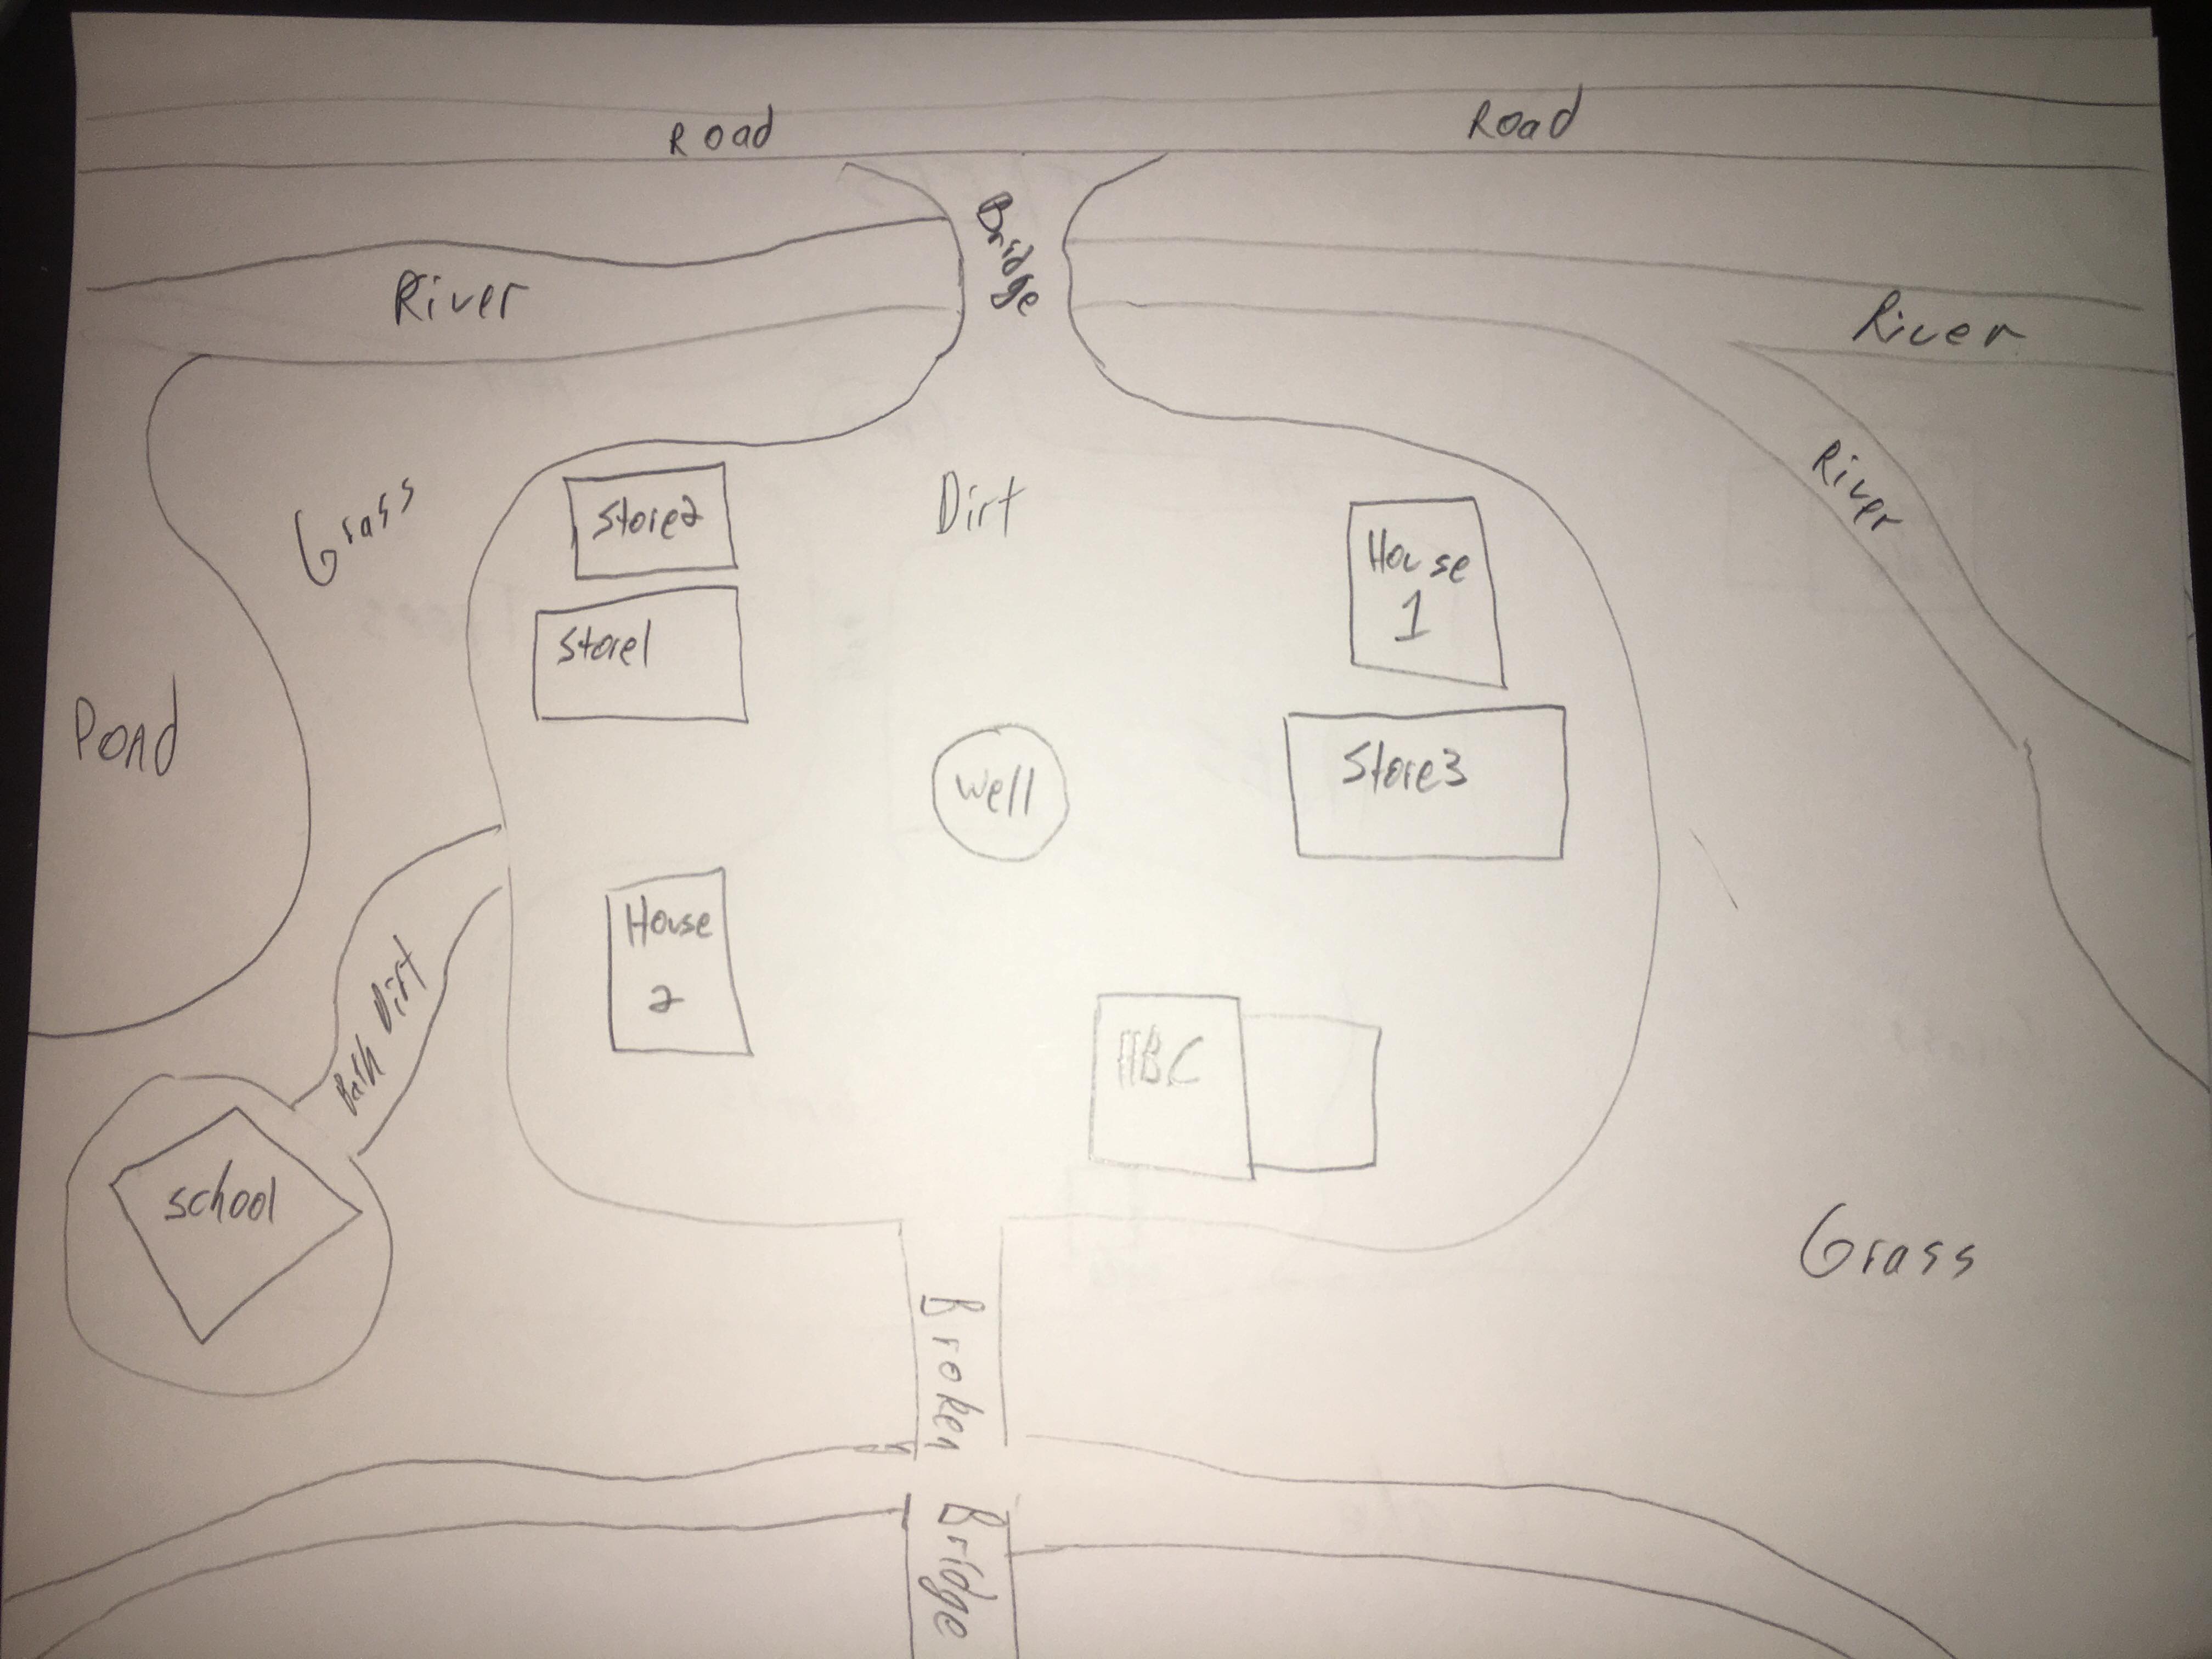 Road
Road
Bridge
River
River
River
Grass
Store2
Dirt
House
1
Store1
Pond
Well
Store3
House
2
Dirt
HBC
School
Grass
Broken
Bridge